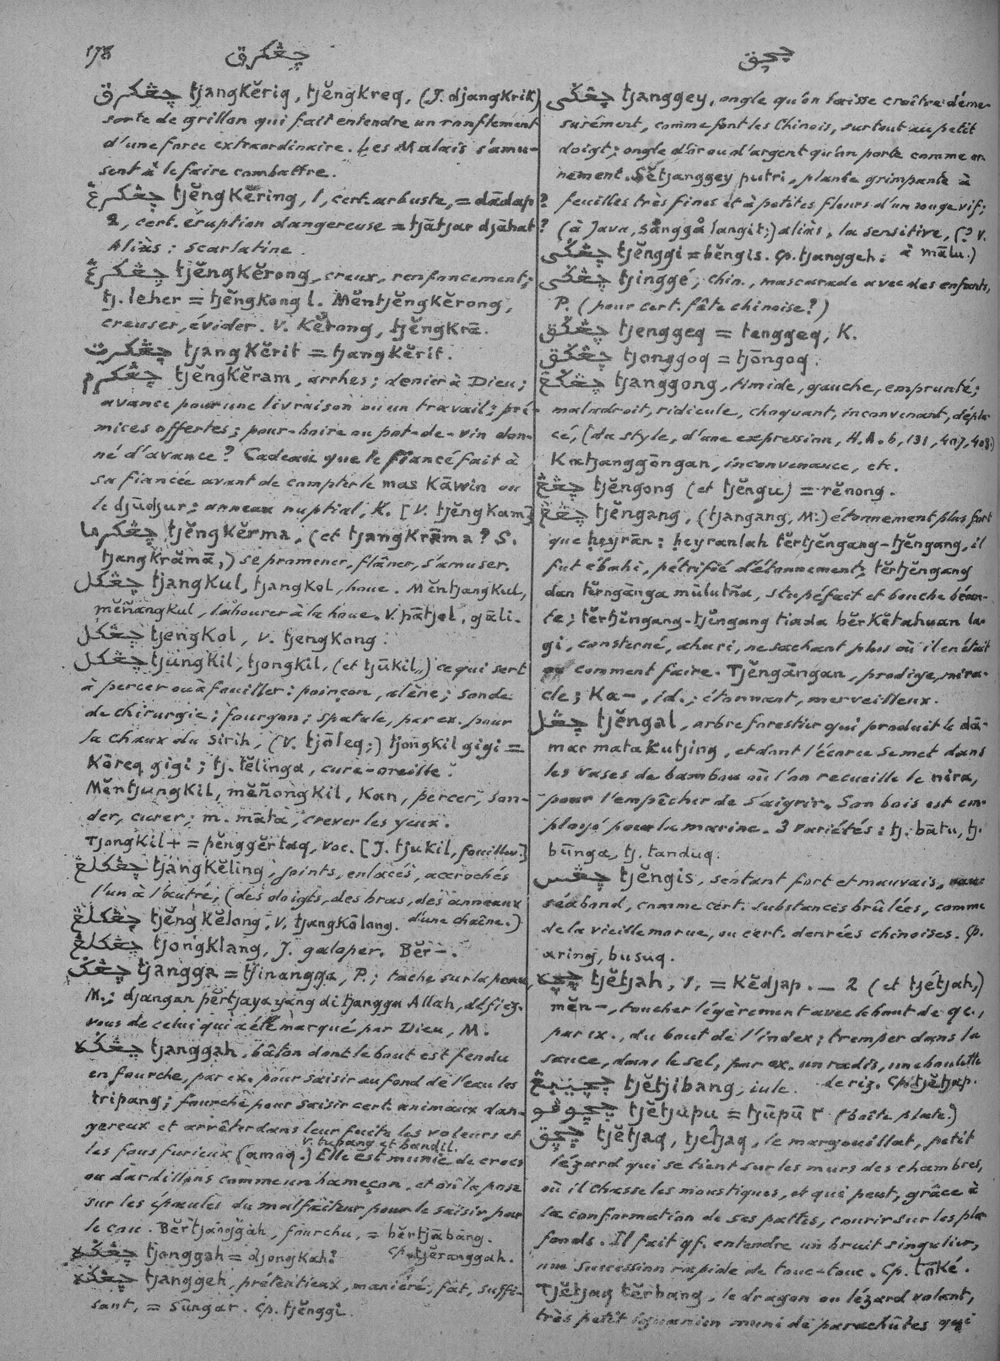 178
چڠكرق
چچق
چڠكرق tjangkĕriq, tjĕngkreq, (J. djangkrik)
sorte de grillon qui fait entendre un ronflement
d'une force extraordinaire. Les Malais s'amu-
sent à le faire combattre.
چڠكرڠ tjĕngkĕring, 1, cert. arbuste, = dādap?
2, cert. éruption dangereuse = tjātjar djāhat?
Aliàs: scarlatine.
چڠكرڠ tjĕngkĕrong, creux, renfoncement;
tj. leher = tjĕngkong l. Mĕntjĕngkĕrong,
creuser, évider. V. Kĕrong, tjĕngkrā.
چڠكرت tjangkĕrit = tjangkĕrit.
چڠكرم tjĕngkĕram, arrhes; denier à Dieu;
avance pour une livraison ou un travail; pré-
mices offertes; pour-boire ou pot-de-vin don-
né d'avance? Cadeau que le fiancé fait à
sa fiancée avant de compter le mas kāwin ou
le djūdjur; anneau nuptial, K. [V. tjĕngkam]
چڠكرما tjĕngkĕrma, (et tjangkrāma? S.
tjangkrāmā,) se promener, flâner, s'amuser.
چڠكل tjangkul, tjangkol, houe. Mĕntjangkul,
mĕñangkul, labourer à la houe. V. pātjol, gāli.
چڠكل tjengkol, v. tjengkong.
چڠكل tjungkil, tjongkil, (et tjūkil,) ce qui sert
à percer ou à fouiller: poinçon, alène; sonde
de chirurgie; fourgon; spatule, par ex. pour
la chaux du sirih, (V. tjōleq;) tjongkil gigi =
Kōreq gigi; tj. tĕlinga, cure-oreille.
Mĕntjungkil, mĕñongkil, kan, percer, son-
der, curer; m. māta, crever les yeux.
Tjongkil+ = pĕnggĕrtaq, voc. [J. tjukil, fouiller]
چڠكلڠ tjangkĕling, joints, enlacés, accrochés
l'un à l'autre, (des doigts, des bras, des anneaux
d'une chaîne.)
چڠكلڠ tjĕngkĕlong, v. tjangkōlong.
چڠكلڠ tjongklang, J. galoper. Bĕr—.
چڠݢ tjangga = tjinangga, P.; tache sur la peau,
M.; djangan pĕrtjaya yang di tjangga Allah, défiez-
vous de celui qui a été marqué par Dieu, M.
چڠݢه tjanggah, bâton dont le bout est fendu
en fourche, par ex. pour saisir au fond de l'eau les
tripang; fourche pour saisir cert. animaux dan-
gereux et arrêter dans leur fuite les voleurs et
les fous furieux (amoq.) v. tupang et bandil. Elle est munie de crocs
ou dardillons comme un hameçon, et on la pose
sur les épaules du malfaiteur pour le saisir par
le cou. Bĕrtjanggah, fourchu, = bĕrtjābang.
Cp. tjĕranggah.
چڠݢه tjonggah = djongkah?
چڠݢه tjanggeh, prétentieux, maniéré, fat, suffi-
sant, = sūngar. Cp. tjĕnggi.
چڠݢي tjanggey, ongle qu'on laisse croître déme-
surément, comme font les Chinois, surtout au petit
doigt; ongle d'or ou d'argent qu'on porte comme or
nement. Sĕtjanggey putri, plante grimpante à
feuilles très fines et à petites fleurs d'un rouge vif;
(à Java, sånggå langit;) aliàs, la sensitive, (? v.
à mālu.)
چڠݢي tjĕnggi = bĕngis. Cp. tjanggeh.
چڠݢي tjinggé, chin., mascarade avec des enfants,
P. (pour cert. fête chinoise?)
چڠݢق tjenggeq = tenggeq, K.
چڠݢق tjonggoq = tjōngoq.
چڠݢڠ tjanggong, timide, gauche, emprunté;
maladroit, ridicule, choquant, inconvenant, dépla-
cé, (du style, d'une expression, H.A. 6, 131, 407, 408.)
Katjanggōngan, inconvenance, etc.
چڠڠ tjĕngong (et tjĕngu) = rĕnong.
چڠڠ tjĕngang, (tjangang, M.) étonnement plus fort
que ḥeyrān: ḥeyranlah tĕrtjĕngang-tjĕngang, il
fut ébahi, pétrifié d'étonnement; tĕrtjĕngang
dan tĕrngānga mūlutña, stupéfait et bouche béan-
te; tĕrtjĕngang-tjĕngang tiada bĕrkĕtahuan la-
gi, consterné, ahuri, ne sachant plus où il en était
comment faire. Tjĕngāngan, prodige, mira-
cle; Ka—, id.; étonnant, merveilleux.
چڠل tjĕngal, arbre forestier qui produit le dā-
mar mata kutjing, et dont l'écorce se met dans
les vases de bambou où l'on recueille le nira,
pour l'empêcher de s'aigrir. Son bois est em-
ployé pour la marine. 3 variétés: tj. bātu, tj.
būnga, tj. tanduq.
چڠس tjĕngis, sentant fort et mauvais,
séabond, comme cert. substances brûlées, comme
de la vieille morue, ou cert. denrées chinoises. Cp.
aring, busuq.
چچه tjĕtjah, 1, = Kĕdjap. — 2 (et tjétjah,)
mĕn—, toucher légèrement avec le bout de qc.,
par ex., du bout de l'index; tremper dans la
sauce, dans le sel, par ex. un radis, une boulette
de riz. Cp. tjĕtjap.
چچيبڠ tjĕtjibang, iule.
چچوڤو tjĕtjupu = tjūpū 2 (boîte plate.)
چچق tjĕtjaq, tjetjaq, le margouillat, petit
lézard qui se tient sur les murs des chambres,
où il chasse les moustiques, et qui peut, grâce à
la conformation de ses pattes, courir sur les pla-
fonds. Il fait qf. entendre un bruit singulier,
une succession rapide de touc-touc. Cp. tōké.
Tjĕtjaq tĕrbang, le dragon ou lézard volant,
très petit iguanien muni de parachûtes qui